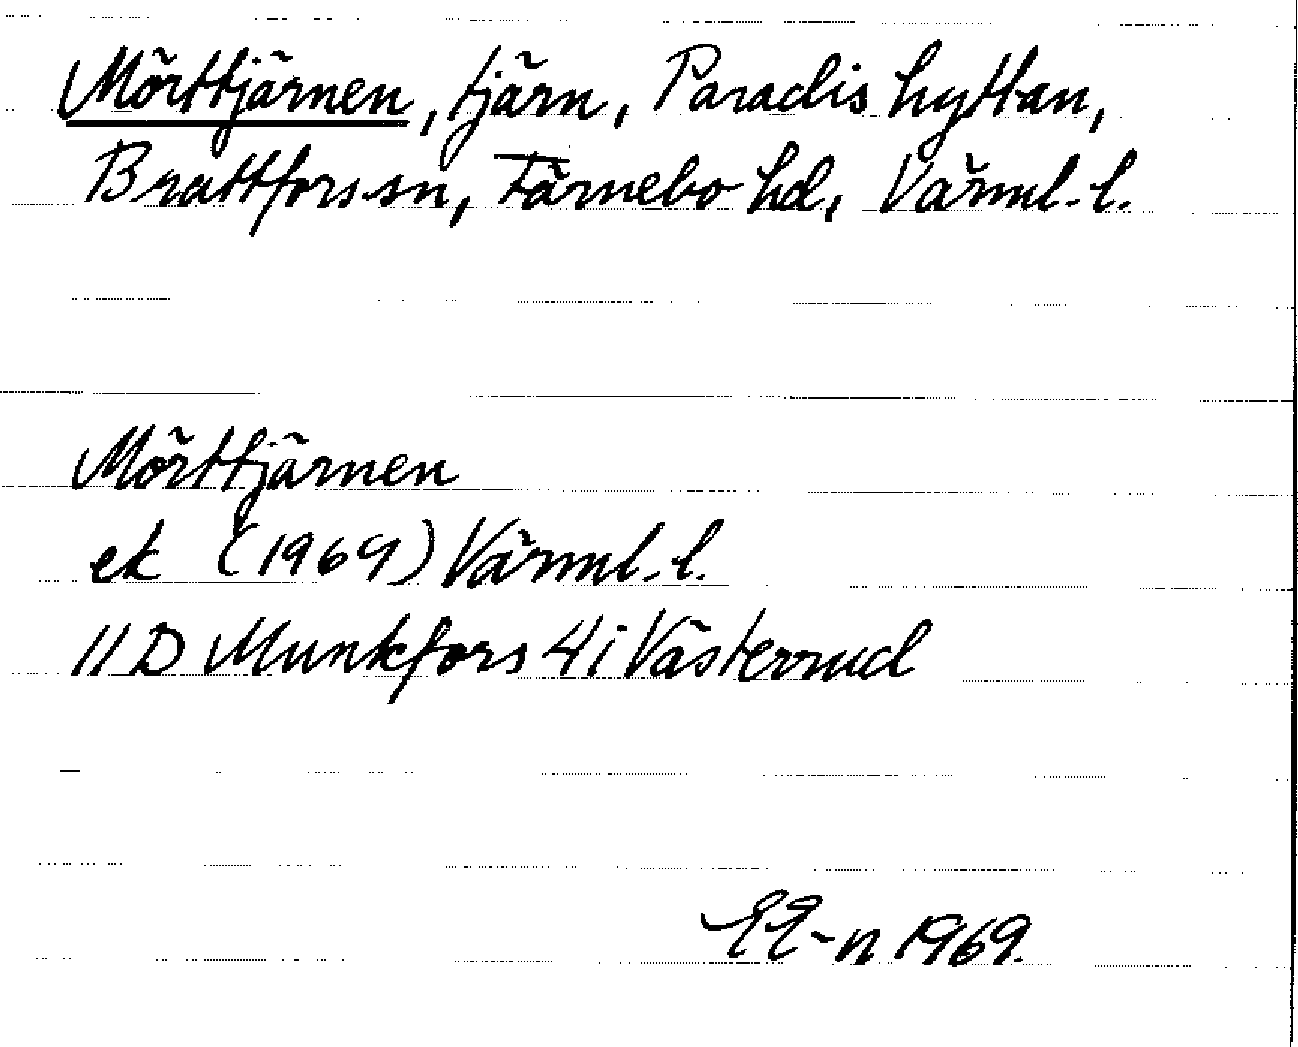 Mörttjärnen, tjärn, Paradishyttan,
Brattfors sn, Färnebo hd, Värml. l.
Mörttjärnen
ek (1969) Värml. l.
11D Munkfors 4i Västerrud
1969.